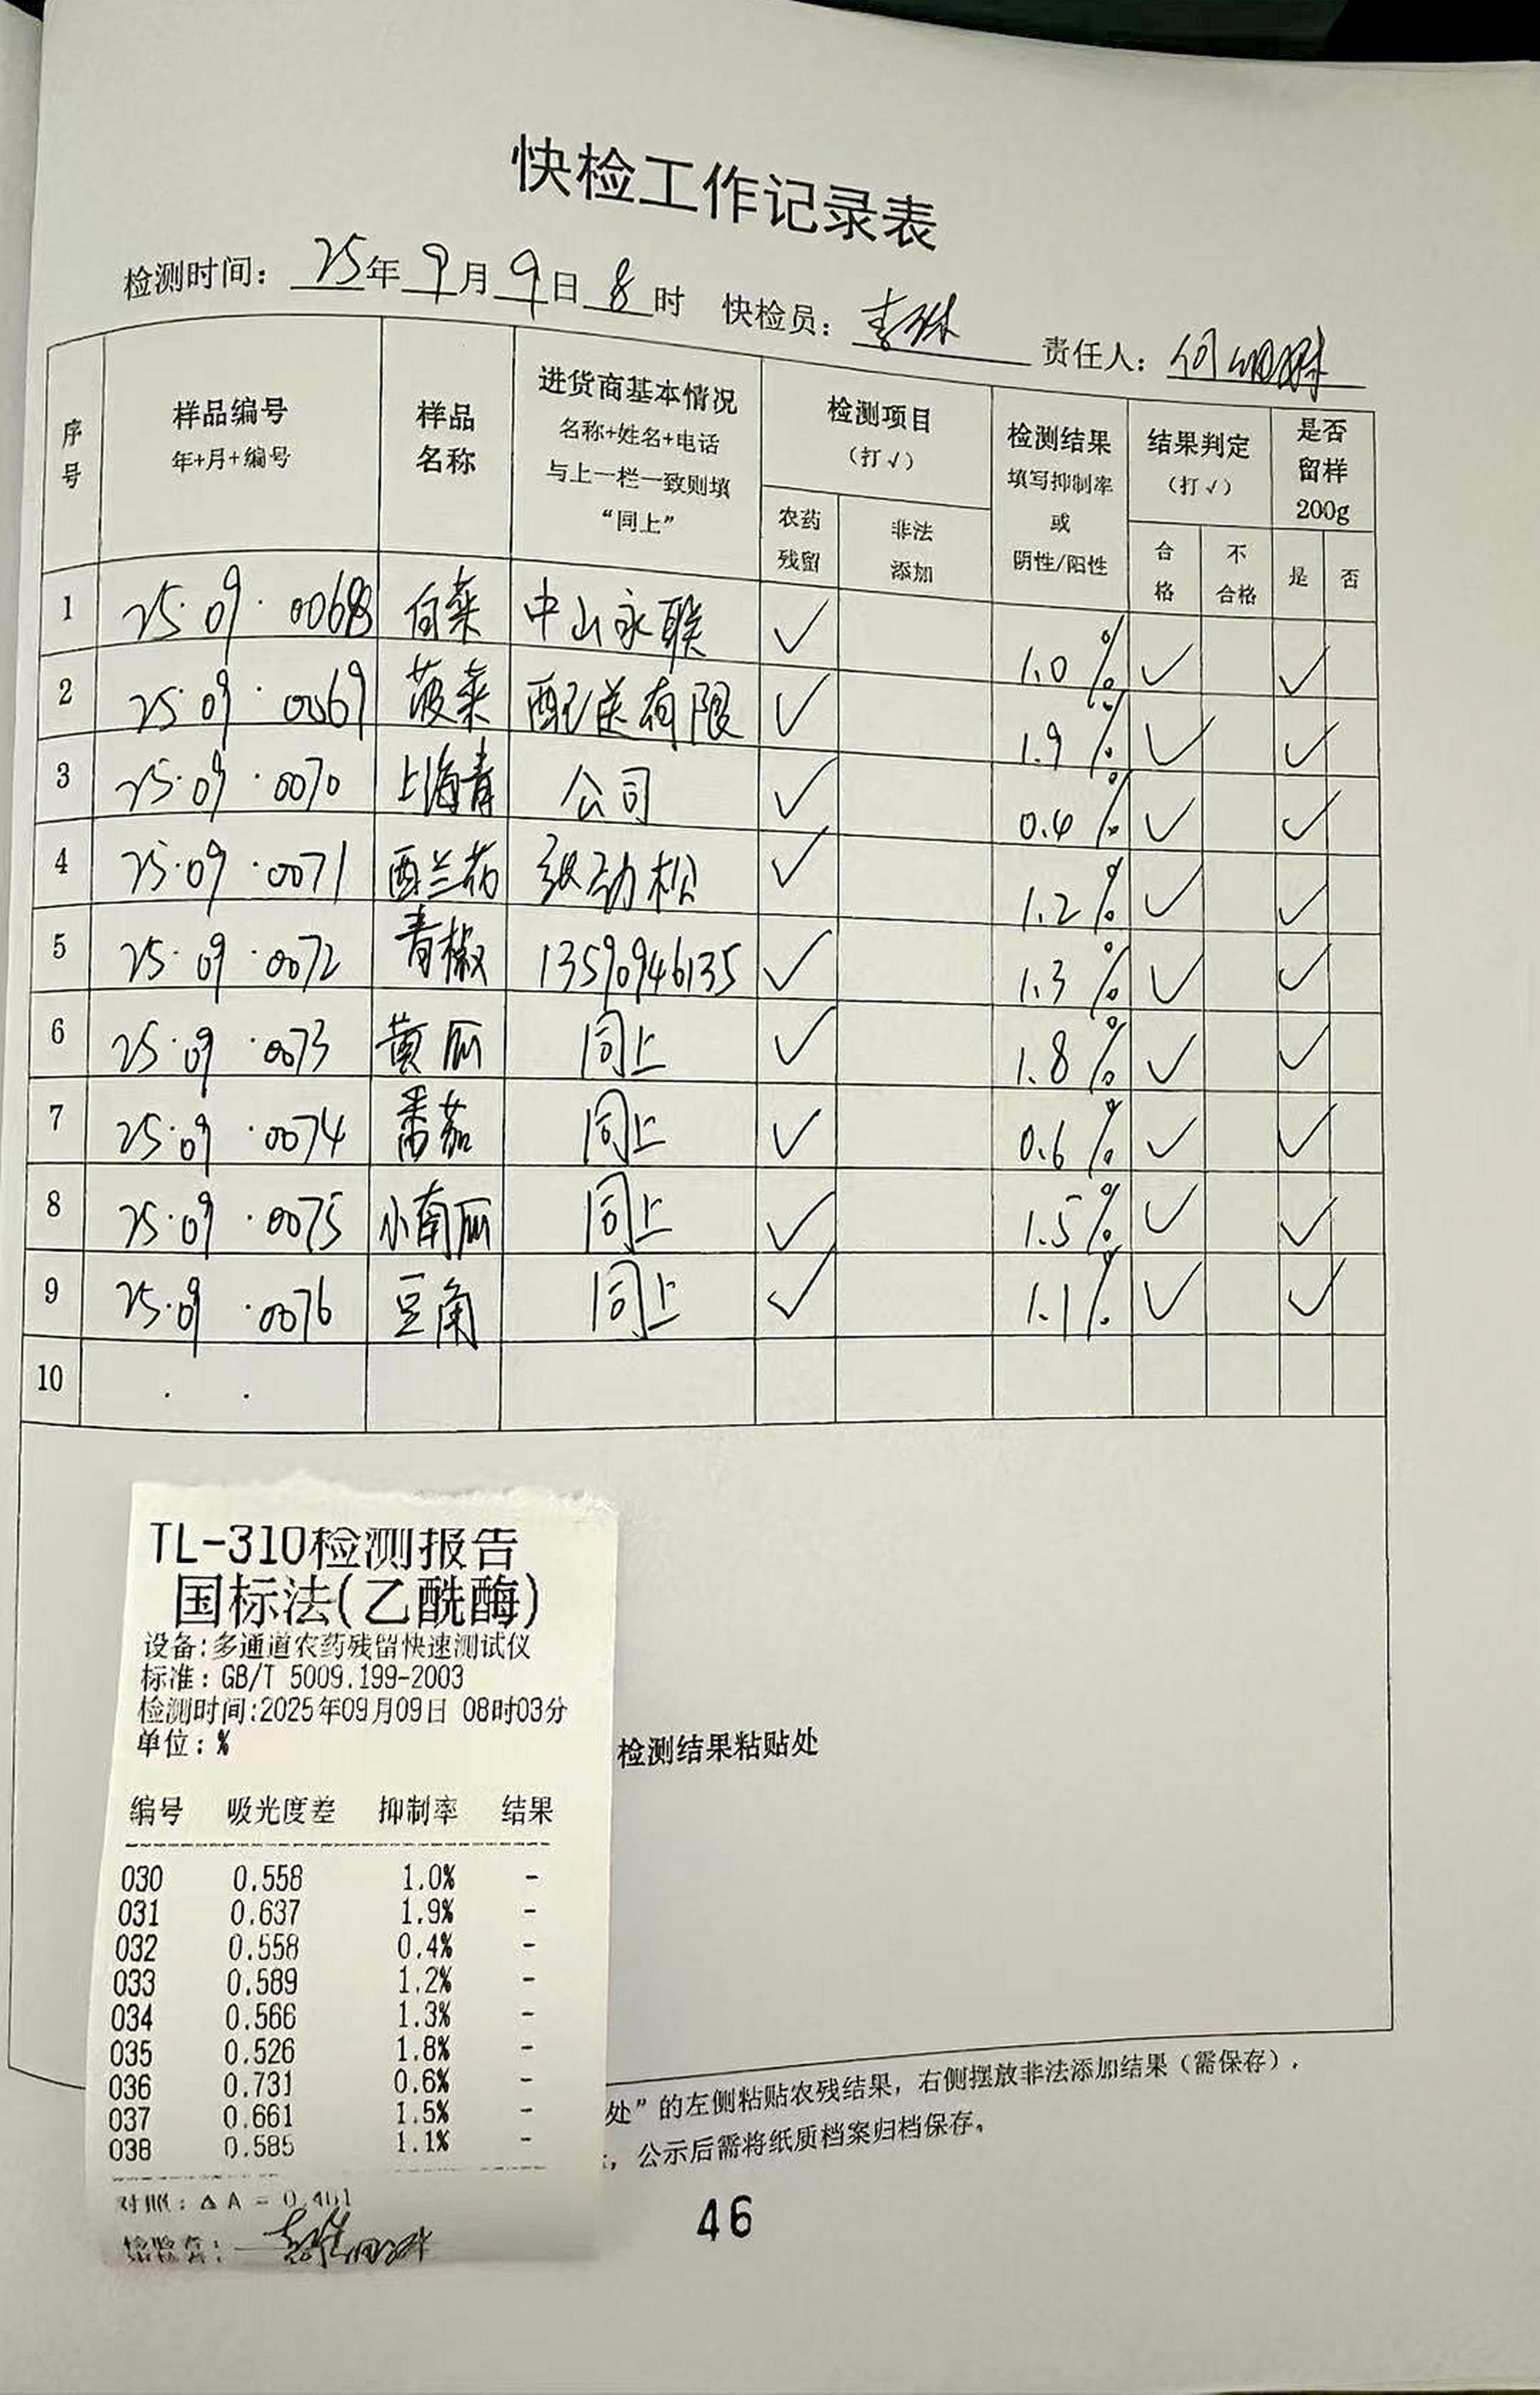 快检工作记录表
检测时间: 25年9月9日8时 快检员: 责任人:
序号 样品编号 年+月+编号 样品名称 进货商基本情况 名称+姓名+电话 与上一栏一致则填“同上” 检测项目（打√） 农药残留 非法添加 检测结果 填写抑制率或阴性/阳性 结果判定（打√） 合格 不合格 是否留样200g 是 否
1 25·09·0068 白菜 中山永联 ✓ 1.0% ✓ ✓
2 25·09·0069 菠菜 配送有限 ✓ 1.9% ✓ ✓
3 25·09·0070 上海青 公司 ✓ 0.4% ✓ ✓
4 25·09·0071 西兰花 劲松 ✓ 1.2% ✓ ✓
5 25·09·0072 青椒 13590946135 ✓ 1.3% ✓ ✓
6 25·09·0073 黄瓜 同上 ✓ 1.8% ✓ ✓
7 25·09·0074 番茄 同上 ✓ 0.6% ✓ ✓
8 25·09·0075 小南瓜 同上 ✓ 1.5% ✓ ✓
9 25·09·0076 豆角 同上 ✓ 1.1% ✓ ✓
10 · ·
TL-310检测报告
国标法(乙酰酶)
设备:多通道农药残留快速测试仪
标准: GB/T 5009.199-2003
检测时间:2025年09月09日 08时03分
单位: %
检测结果粘贴处
编号 吸光度差 抑制率 结果
030 0.558 1.0% -
031 0.637 1.9% -
032 0.558 0.4% -
033 0.589 1.2% -
034 0.566 1.3% -
035 0.526 1.8% -
036 0.731 0.6% -
037 0.661 1.5% -
038 0.585 1.1% -
对照: △A = 0.461
检验员:
处”的左侧粘贴农残结果，右侧摆放非法添加结果（需保存）.
，公示后需将纸质档案归档保存。
46